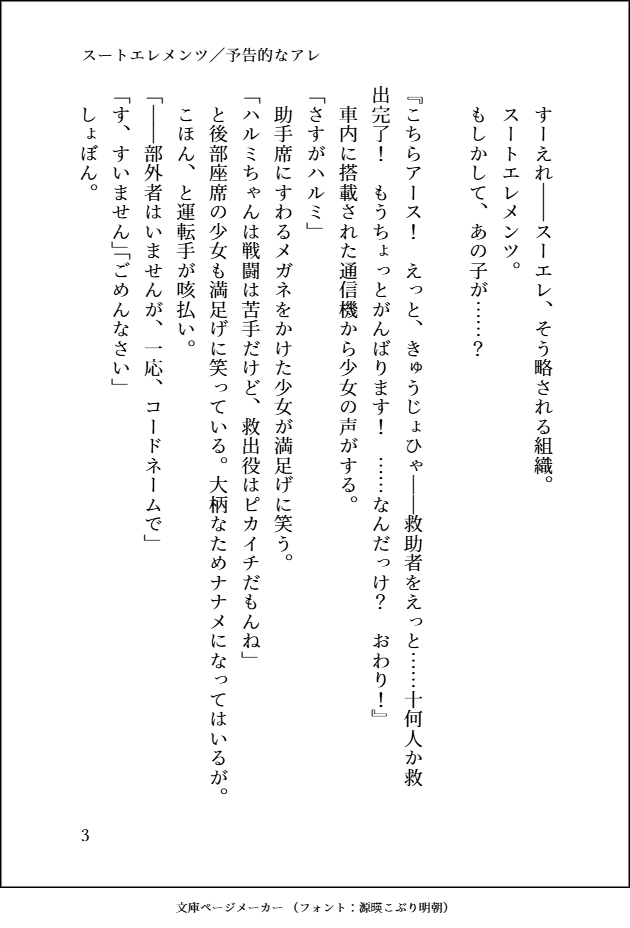 スートエレメンツ／予告的なアレ
すーえれ――スーエレ、そう略される組織。
スートエレメンツ。
もしかして、あの子が……？
『こちらアース！　えっと、きゅうじょひゃ――救助者をえっと……十何人か救
出完了！　もうちょっとがんばります！　……なんだっけ？　おわり！』
車内に搭載された通信機から少女の声がする。
「さすがハルミ」
助手席にすわるメガネをかけた少女が満足げに笑う。
「ハルミちゃんは戦闘は苦手だけど、救出役はピカイチだもんね」
と後部座席の少女も満足げに笑っている。大柄なためナナメになってはいるが。
こほん、と運転手が咳払い。
「――部外者はいませんが、一応、コードネームで」
「す、すいません」「ごめんなさい」
しょぼん。
3
文庫ページメーカー（フォント：源暎こぶり明朝）